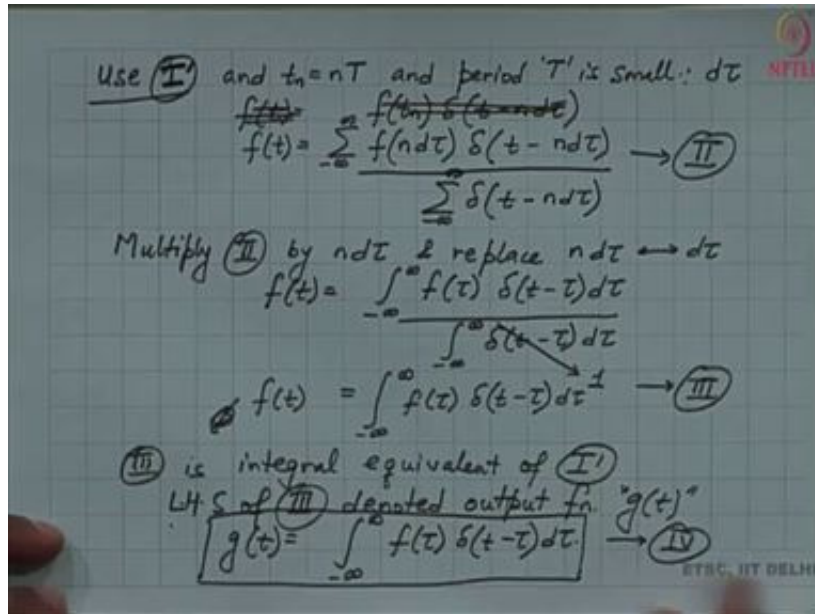 Use I' and tn = nT and period 'T' is small: dτ
f(t)= f(tn) δ(t-ndτ)
f(t)= ∑_{-∞}^{∞} f(ndτ) δ(t-ndτ) → II
∑_{-∞}^{∞} δ(t-ndτ)
Multiply II by ndτ & replace ndτ ↔ dτ
f(t)= ∫_{-∞}^{∞} f(τ) δ(t-τ)dτ
∫_{-∞}^{∞} δ(t-τ)dτ
1
f(t) = ∫_{-∞}^{∞} f(τ) δ(t-τ)dτ → III
III is integral equivalent of I'
LHS of III denoted output fn. "g(t)"
g(t)= ∫_{-∞}^{∞} f(τ) δ(t-τ)dτ. → IV
NPTEL
ETSC, IIT DELHI